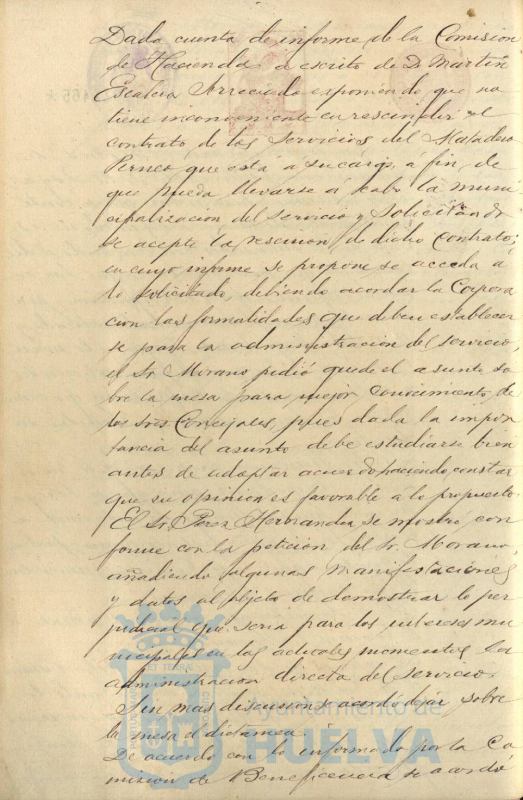 Dada cuenta de informe de la Comisión
de Hacienda a escrito de D. Martin
Escalera Arreciado exponiendo que no
tiene inconveniente en rescindir el
contrato de los servicios del Matadero
Perneo que está a su cargo, a fin de
que pueda llevarse a cabo la muni
cipalización del servicio y solicitando
se acepte la rescisión de dicho contrato;
en cuyo informe se propone se acceda a
lo solicitado, debiendo acordar la Corpora
ción las formalidades que deben establecer
se para la administración del servicio,
el Sr. Morano pidió quede el asunto so
bre la mesa para mejor conocimiento de
los Sres Concejales, pues dada la impor
tancia del asunto debe estudiarse bien
antes de adoptar acuerdo, haciendo constar
que su opinión es favorable a lo propuesto.
El Sr. Perez Hernandez se mostró con
forme con la petición del Sr. Morano,
añadiendo algunas manifestaciones
y datos al objeto de demostrar lo per
judicial que seria para los intereses mu
nicipales en los actuales momentos la
administración directa del servicio.
Sin mas discusión se acordó dejar sobre
la mesa el dictamen.
De acuerdo con lo informado por la Co
misión de Beneficencia se acordó
Ayuntamiento de
HUELVA